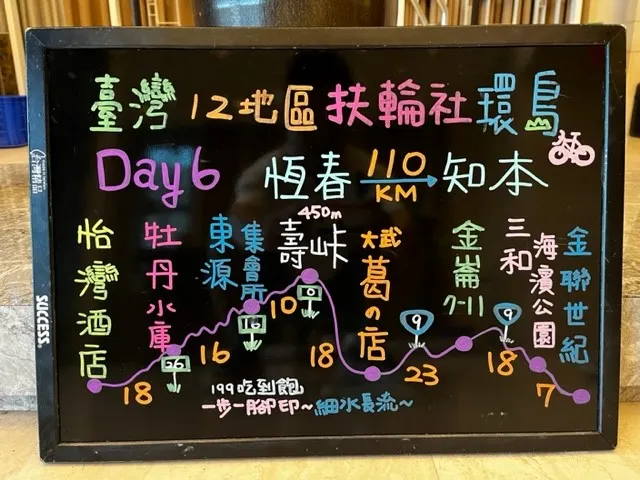 臺灣12地區扶輪社環島
Day6 恆春 110 KM 知本
怡灣酒店
牡丹水庫
東源
集會所
450m
壽峠
大武
葛の店
金崙
7-11
三和
海濱公園
金聯世紀
18
16
10
18
23
18
7
26
16
9
9
9
199吃到飽
一步一腳印~細水長流~
SUCCESS